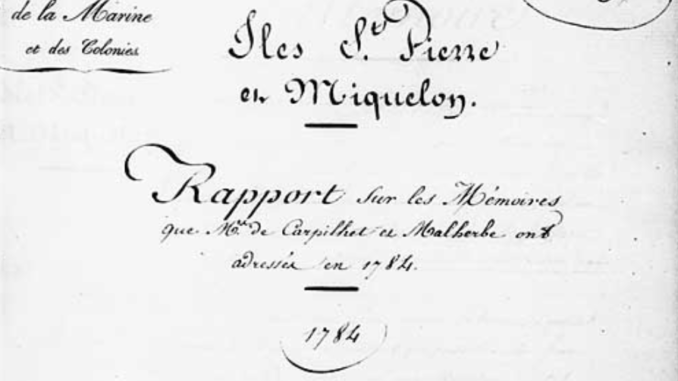 de la Marine
et des Colonies
Iles S.ts Pierre
et Miquelon.
Rapport sur les Mémoires
que M.rs de Carpilhet et Malherbe ont
adressés en 1784.
1784